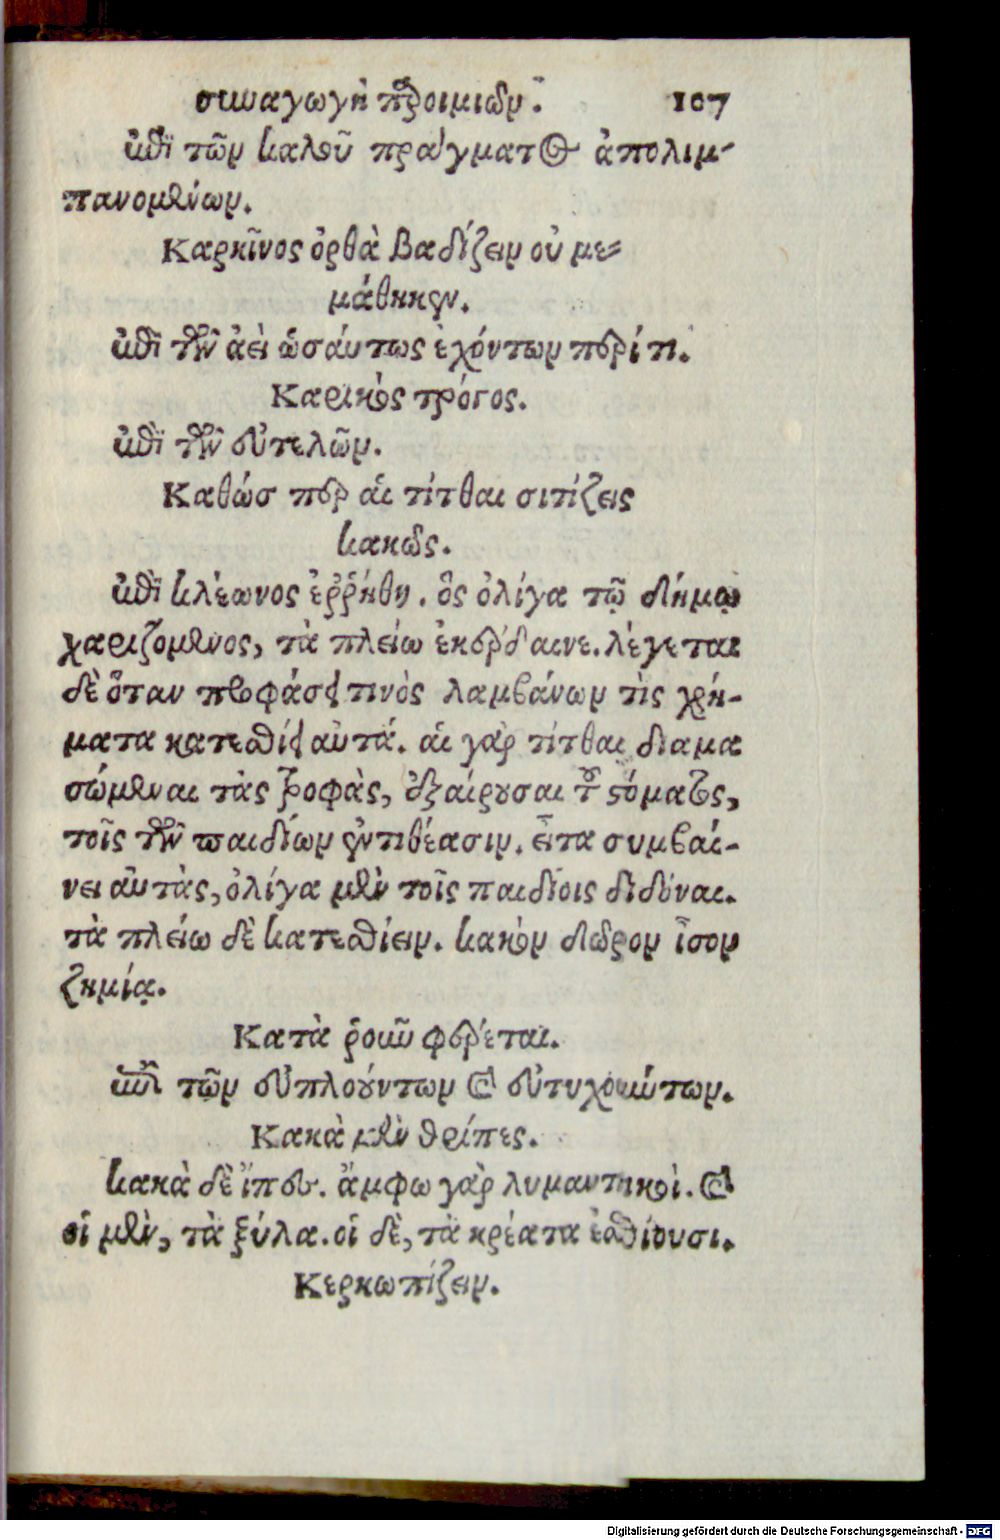 συναγωγὴ παροιμιῶν. 107
ἐπὶ τῶν καλοῦ πράγματος ἀπολιμ-
πανομένων.
Καρκῖνος ὀρθὰ βαδίζειν οὐ με-
μάθηκεν.
ἐπὶ τῶν ἀεὶ ὡσαύτως ἐχόντων περί τι.
Καρικὸς τράγος.
ἐπὶ τῶν εὐτελῶν.
Καθώσ περ αἱ τίτθαι σιτίζεις
κακῶς.
ἐπὶ κλέωνος ἐῤῥήθη. ὃς ὀλίγα τῷ δήμῳ
χαριζόμενος, τὰ πλείω ἐκέρδαινε. λέγεται
δὲ ὅταν προφάσει τινὸς λαμβάνων τὶς χρή-
ματα κατεσθίει αὐτά. αἱ γὰρ τίτθαι διαμα
σώμεναι τὰς τροφὰς, ἐξαίρουσαι τοῦ στόματος,
τοῖς τῶν παιδίων ἐντιθέασιν. εἶτα συμβαί-
νει αὐτὰς, ὀλίγα μὲν τοῖς παιδίοις διδόναι.
τὰ πλείω δὲ κατεσθίειν. κακὸν δῶρον ἶσον
ζημίᾳ.
Κατὰ ῥοῦν φέρεται.
ἐπὶ τῶν εὐπλούντων καὶ εὐτυχούντων.
Κακὰ μὲν θρίπες.
κακὰ δὲ ἴπες. ἄμφω γὰρ λυμαντικοὶ. καὶ
οἱ μὲν, τὰ ξύλα. οἱ δὲ, τὰ κρέατα ἐσθίουσι.
Κερκωπίζειν.
Digitalisierung gefördert durch die Deutsche Forschungsgemeinschaft - DFG